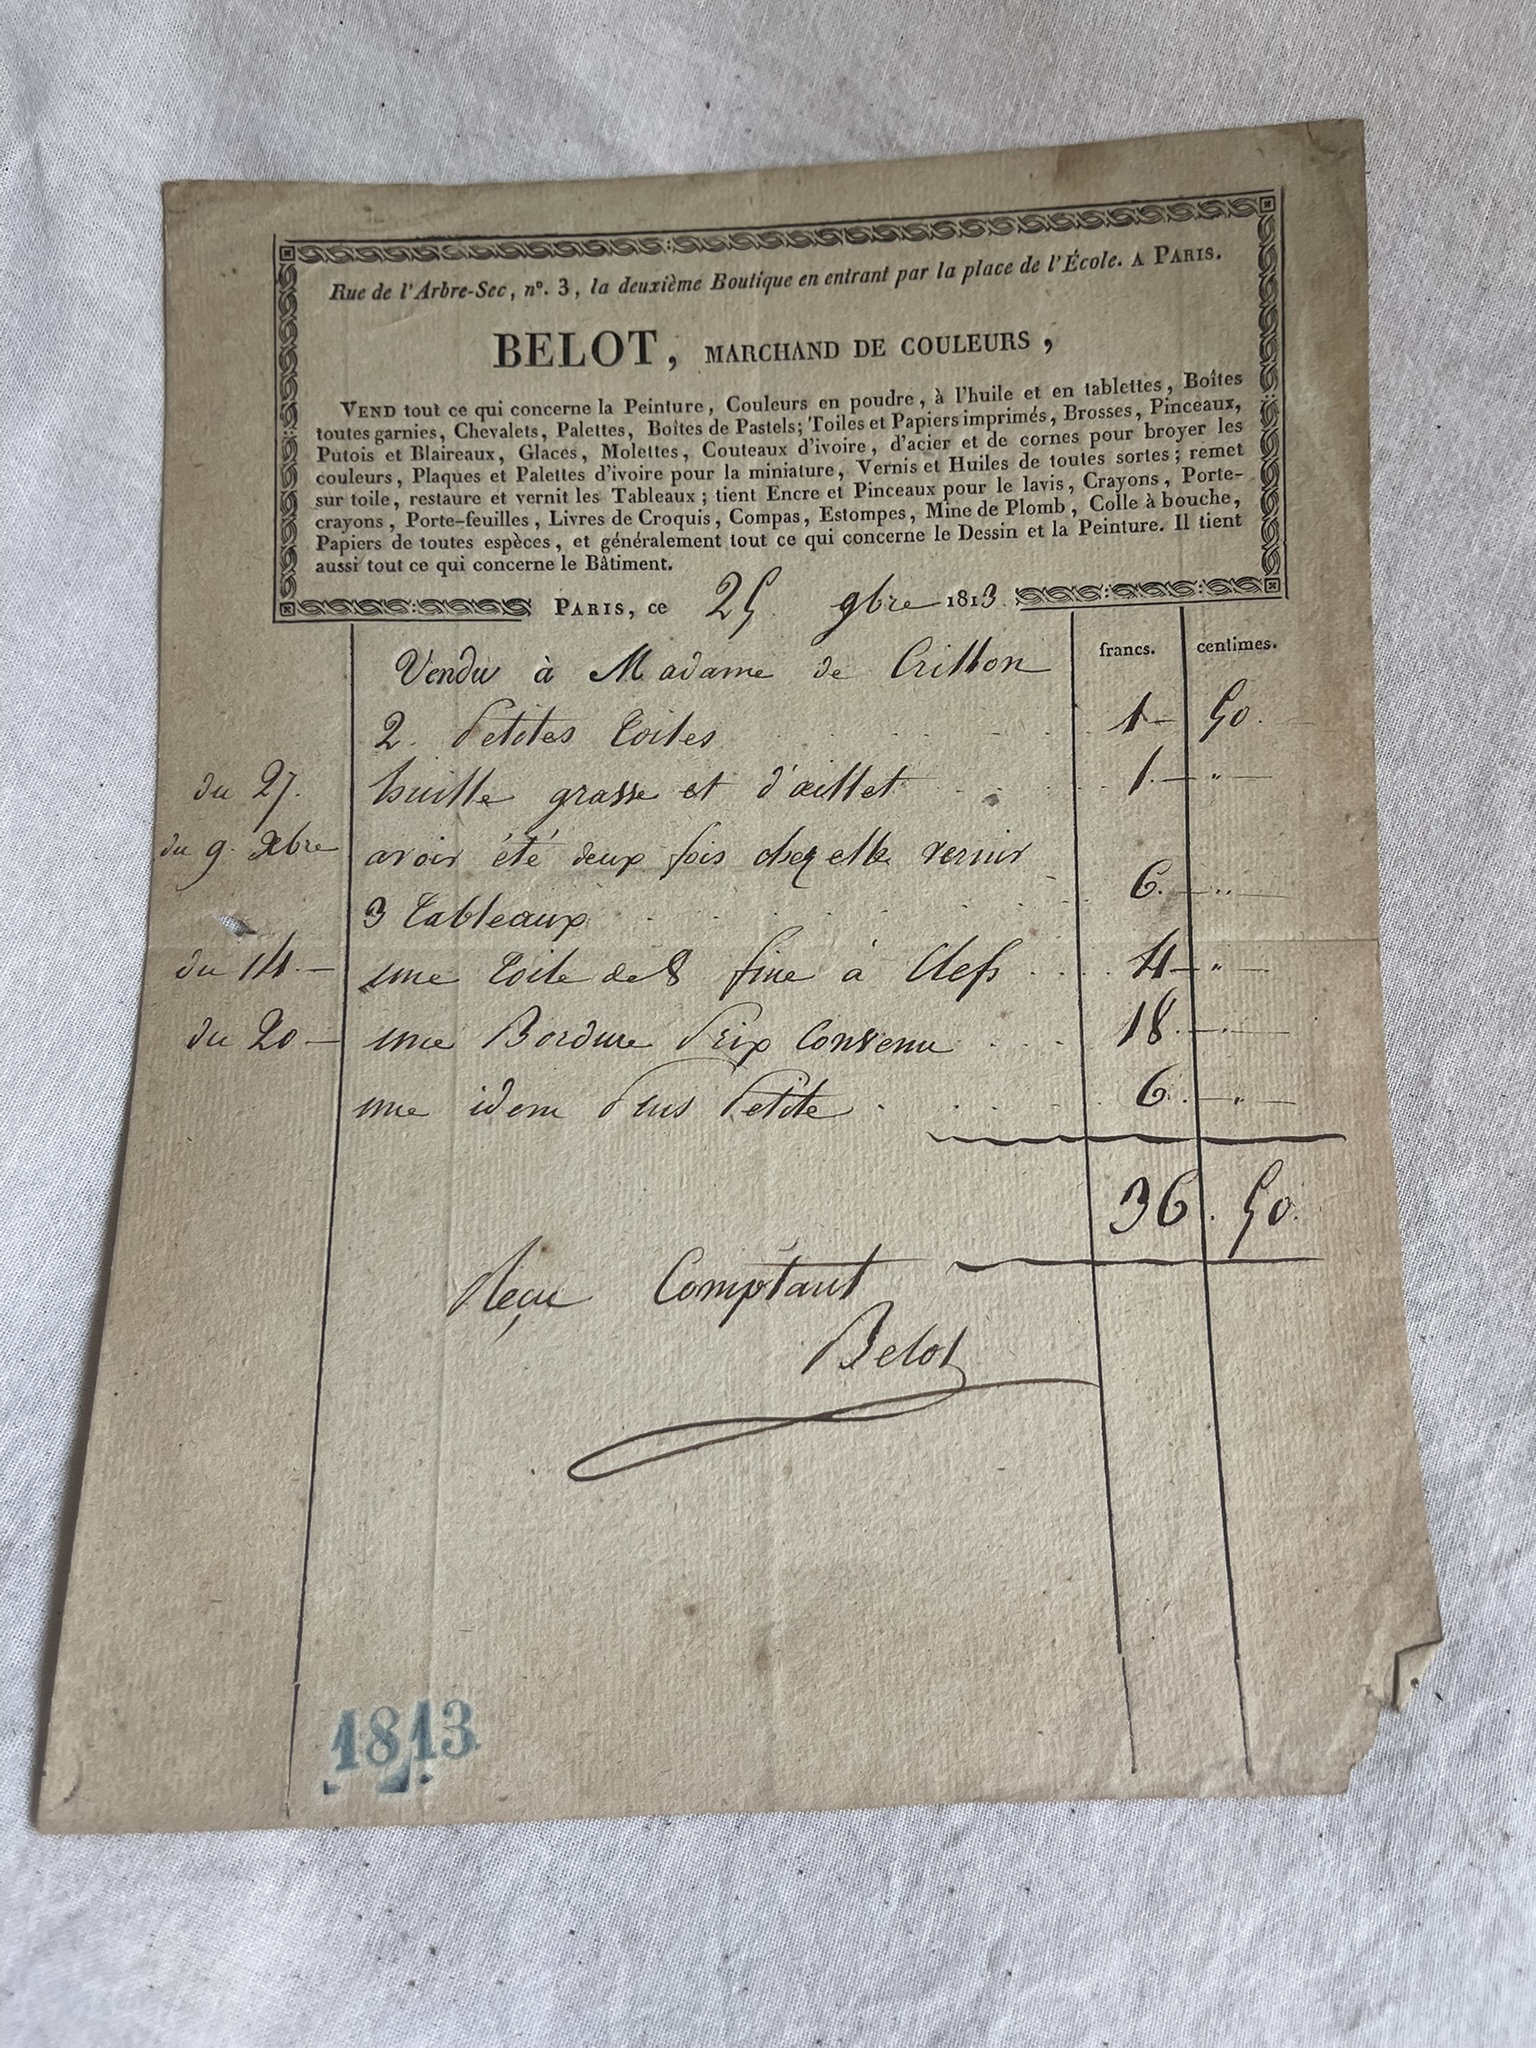 Rue de l'Arbre-Sec, nº. 3, la deuxième Boutique en entrant par la place de l'École. A PARIS.
BELOT, MARCHAND DE COULEURS,
VEND tout ce qui concerne la Peinture, Couleurs en poudre, à l'huile et en tablettes, Boîtes
toutes garnies, Chevalets, Palettes, Boîtes de Pastels; Toiles et Papiers imprimés, Brosses, Pinceaux,
Putois et Blaireaux, Glaces, Molettes, Couteaux d'ivoire, d'acier et de cornes pour broyer les
couleurs, Plaques et Palettes d'ivoire pour la miniature, Vernis et Huiles de toutes sortes; remet
sur toile, restaure et vernit les Tableaux; tient Encre et Pinceaux pour le lavis, Crayons, Porte-
crayons, Porte-feuilles, Livres de Croquis, Compas, Estompes, Mine de Plomb, Colle à bouche,
Papiers de toutes espèces, et généralement tout ce qui concerne le Dessin et la Peinture. Il tient
aussi tout ce qui concerne le Bâtiment.
PARIS, ce 25 9bre 1813.
francs. centimes.
Vendu à Madame de Crillon
2. Petites toiles 1 50.
du 27. huille grasse et d'œillet 1. "
du 9. Xbre avoir été deux fois chez elle vernir
3 tableaux 6. "
du 14. une toile de 8 fine à Clefs 4 "
du 20 une Bordure Prix Convenu 18. "
une idem Plus Petite 6. "
36. 50.
Reçu Comptant
Belot
1813